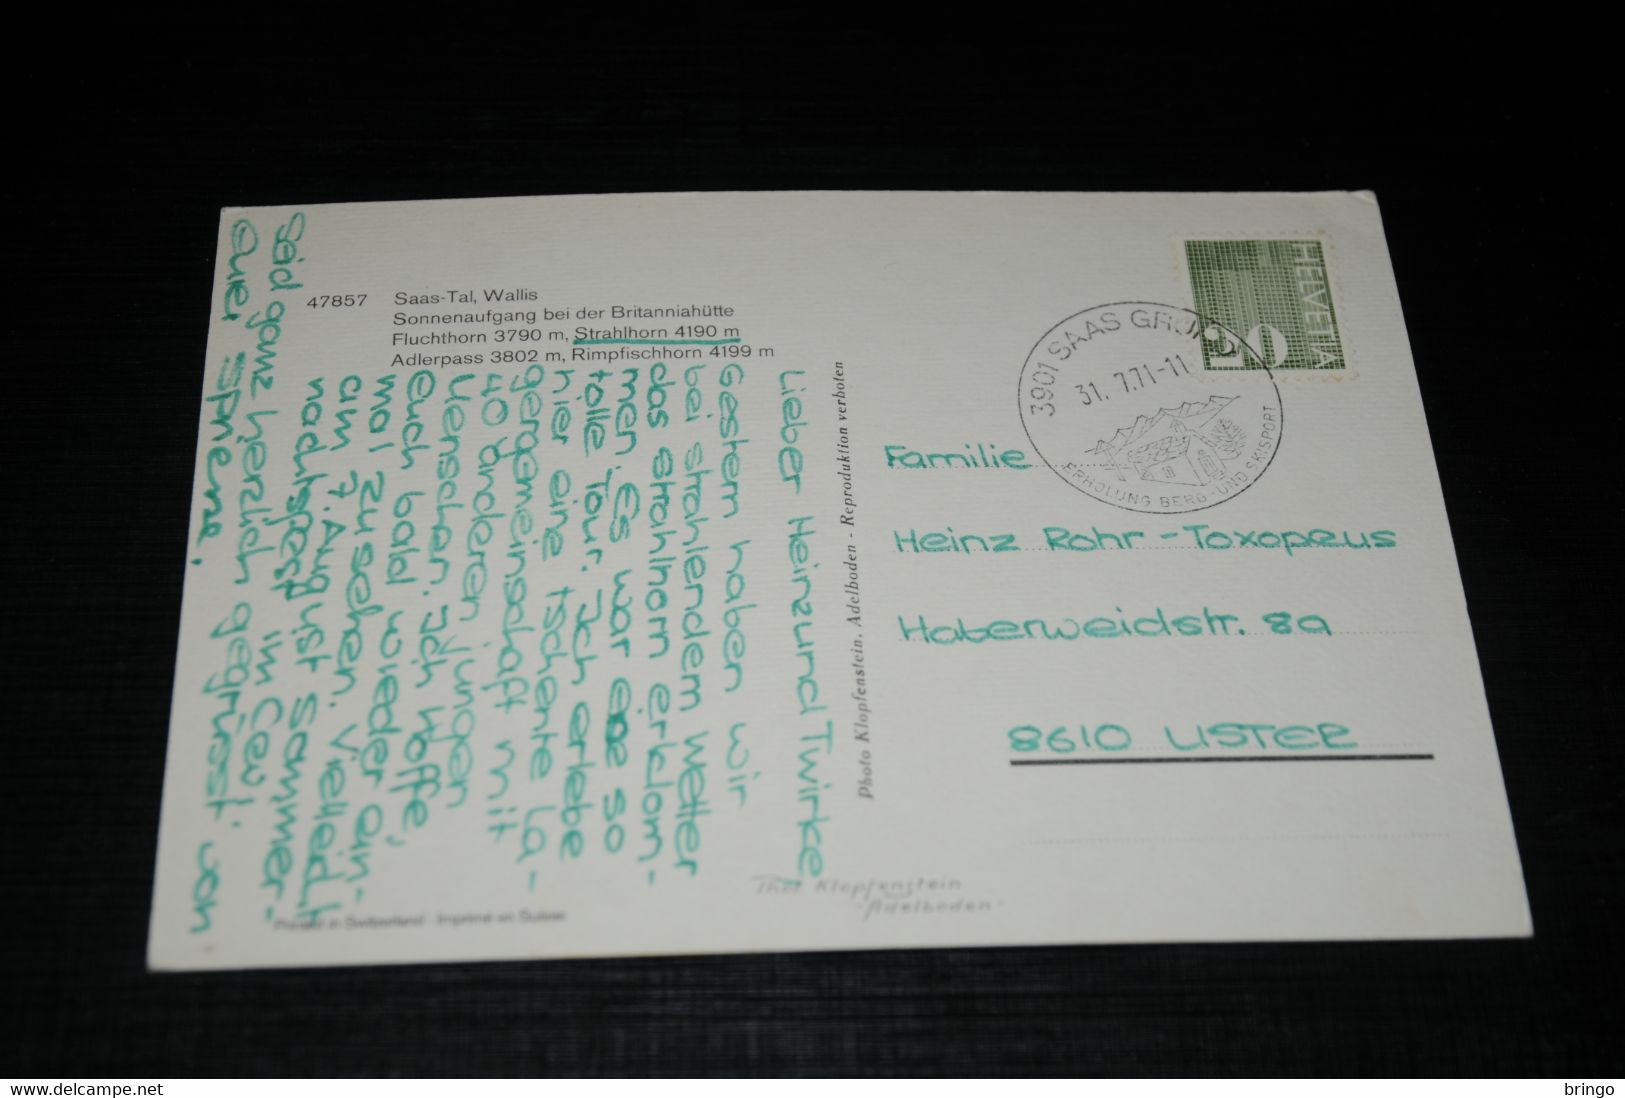 47857 Saas-Tal, Wallis
Sonnenaufgang bei der Britanniahütte
Fluchthorn 3790 m, Strahlhorn 4190 m
Adlerpass 3802 m, Rimpfischhorn 4199 m
Lieber Heinz und Twirke,
Gestern haben wir
bei strahlendem Wetter
das Strahlhorn erklom-
men. Es war eine so
tolle Tour. Ich erlebe
hier eine tschente La-
gergemeinschaft mit
40 anderen jungen
Menschen. Ich hoffe,
euch bald wieder ein-
mal zu sehen. Vielleicht
am 7. August Sommer-
nachtsfest im Cevi
Seid ganz herzlich gegrüsst von
eurer
Photo Klopfenstein, Adelboden - Reproduktion verboten
HELVETIA
20
3901 SAAS GRUND
31. 7.71-11
ERHOLUNG BERG- UND SKISPORT
Familie
Heinz Rohr-Toxopeus
Haberweidstr. 8a
8610 USTER
Thor Klopfenstein
Adelboden
Printed in Switzerland - Imprimé en Suisse
bringo
www.delcampe.net